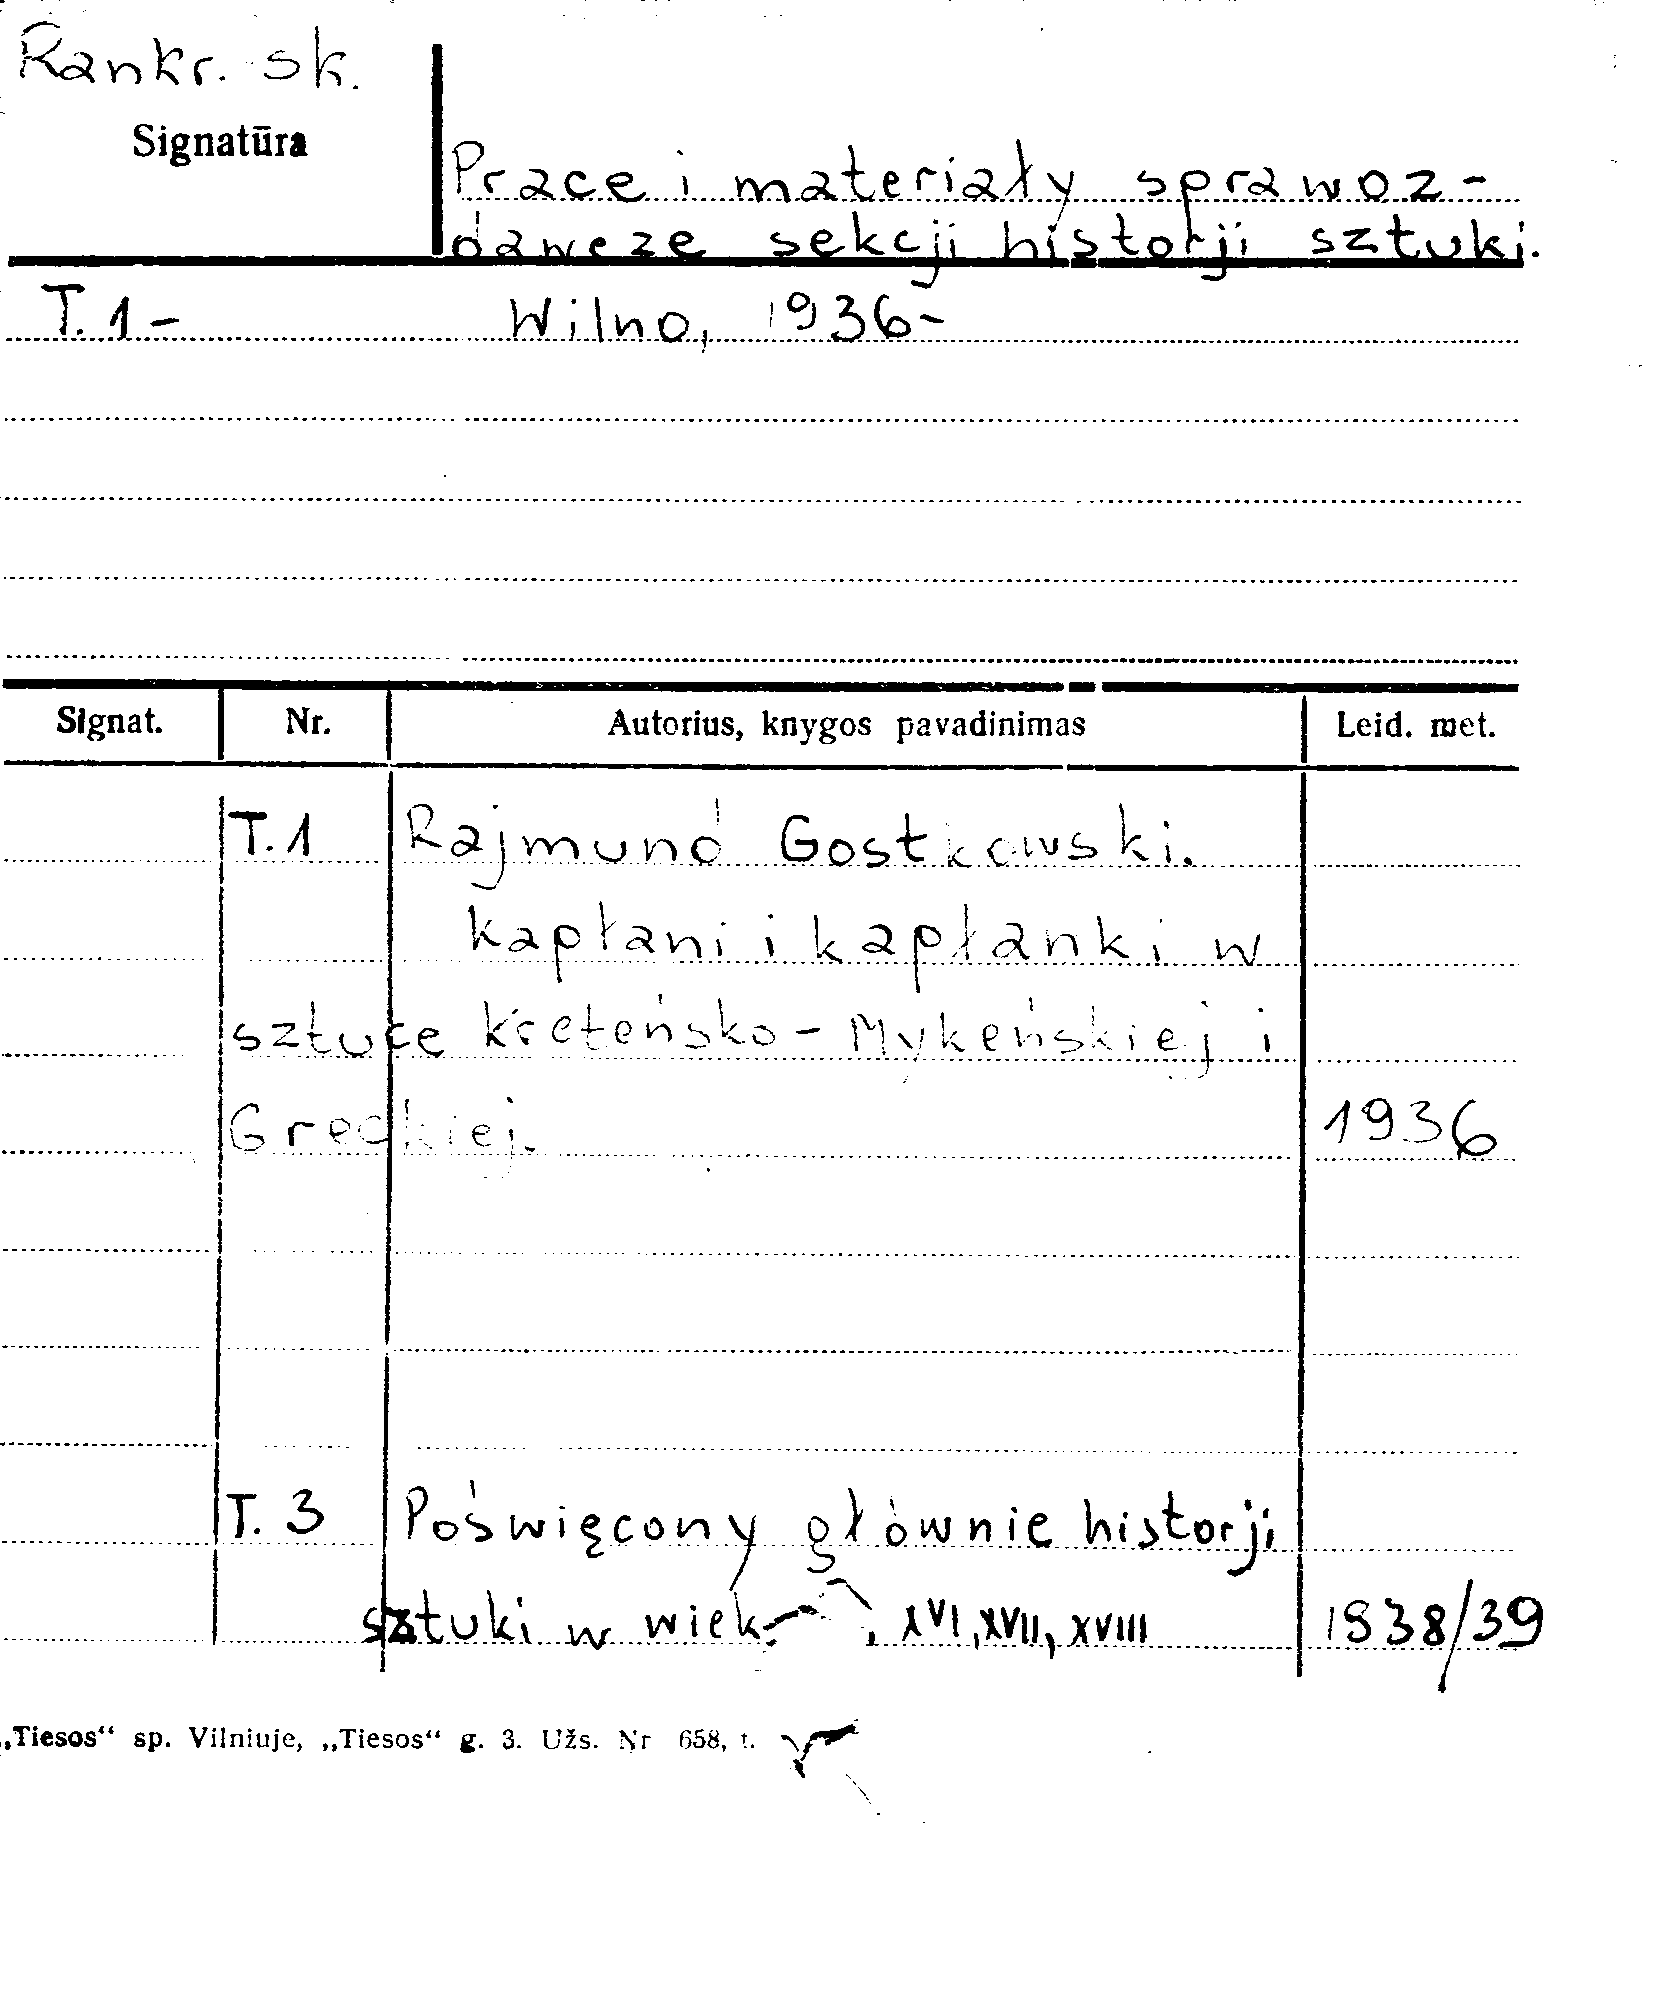 Rankr. sk.
Signatūra
Prace i materiały sprawoz-
dawcze sekcji historji sztuki.
T. 1- Wilno, 1936-
Signat. Nr. Autorius, knygos pavadinimas Leid. met.
T. 1 Rajmund Gostkowski.
Kapłani i kapłanki w
sztuce Kreteńsko-Mykeńskiej i
Greckiej. 1936
T. 3 Poświęcony głównie historji
sztuki w wiek. XVI, XVII, XVIII 1938/39
„Tiesos“ sp. Vilniuje, „Tiesos“ g. 3. Užs. Nr 658, t.